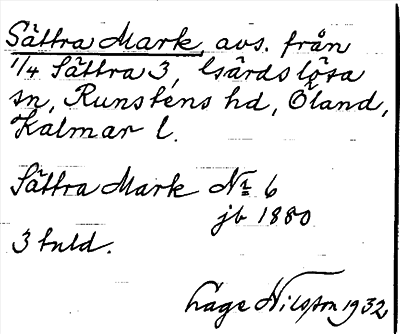 Sättra Mark, avs. från
1/4 Sättra 3, Gärdslösa
sn, Runstens hd, Öland,
Kalmar l.
Sättra Mark No 6
jb 1880
3 tuld.
Låge Nilsson 1932